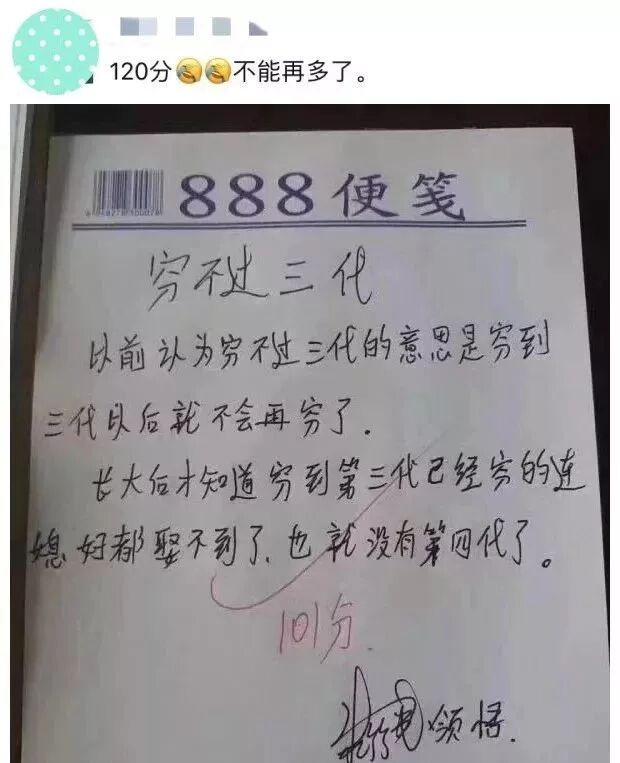 120分🤣🤣不能再多了。
888便笺
穷不过三代
以前认为穷不过三代的意思是穷到
三代以后就不会再穷了.
长大后才知道穷到第三代已经穷的连
媳妇都娶不到了、也就没有第四代了。
101分.
领悟.